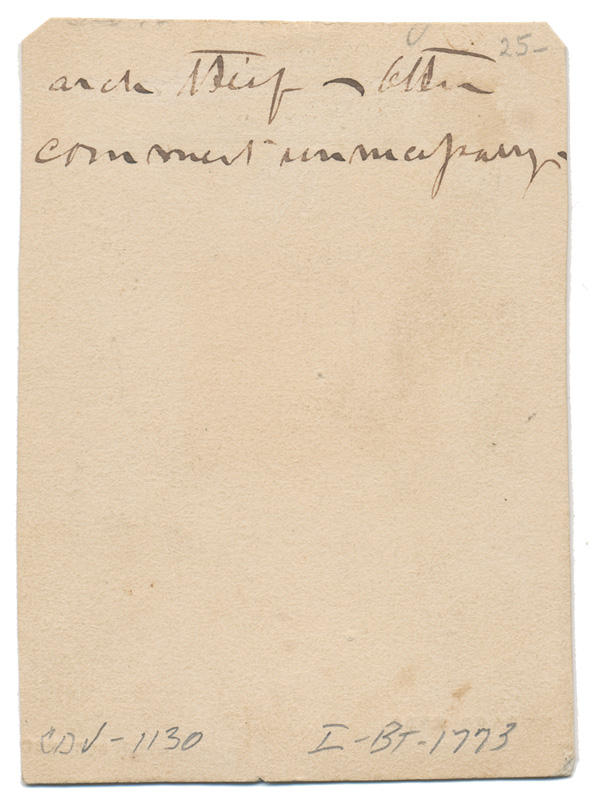 25-
arch thief - other
comment unnecessary.
CDV-1130 I-BT-1773